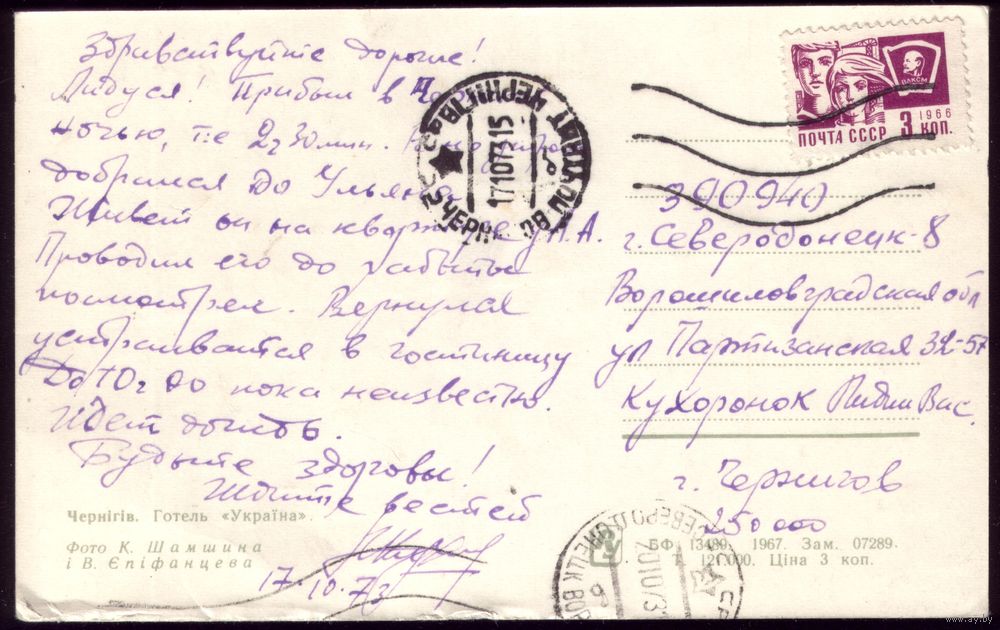 Здравствуйте дорогие!
Лидуся! Прибыл в
ночью, т.е 2ч 30мин.
добрался до Ульян
Живет он на квартире у Н.А.
Проводил его до работы
посмотрел. Вернулся
устраиваться в гостиницу
До 10ч но пока неизвестно.
Идет дождь.
Будьте здоровы!
Ждите вестей
17.10.73
Чернігів. Готель «Україна».
Фото К. Шамшина
і В. Єпіфанцева
ЧЕРНІГІВ
171073 15
ПОЧТА СССР 3 КОП.
1966
ВЛКСМ
390940
г. Северодонецк-8
Ворошиловградская обл
ул Партизанская 32-57
Кухоронок Лидии Вас.
г. Чернигов
250000
БФ 13489. 1967. Зам. 07289.
Т. 121.000. Ціна 3 коп.
СЕВЕРОДОНЕЦК ВОР
201073
www.ay.by